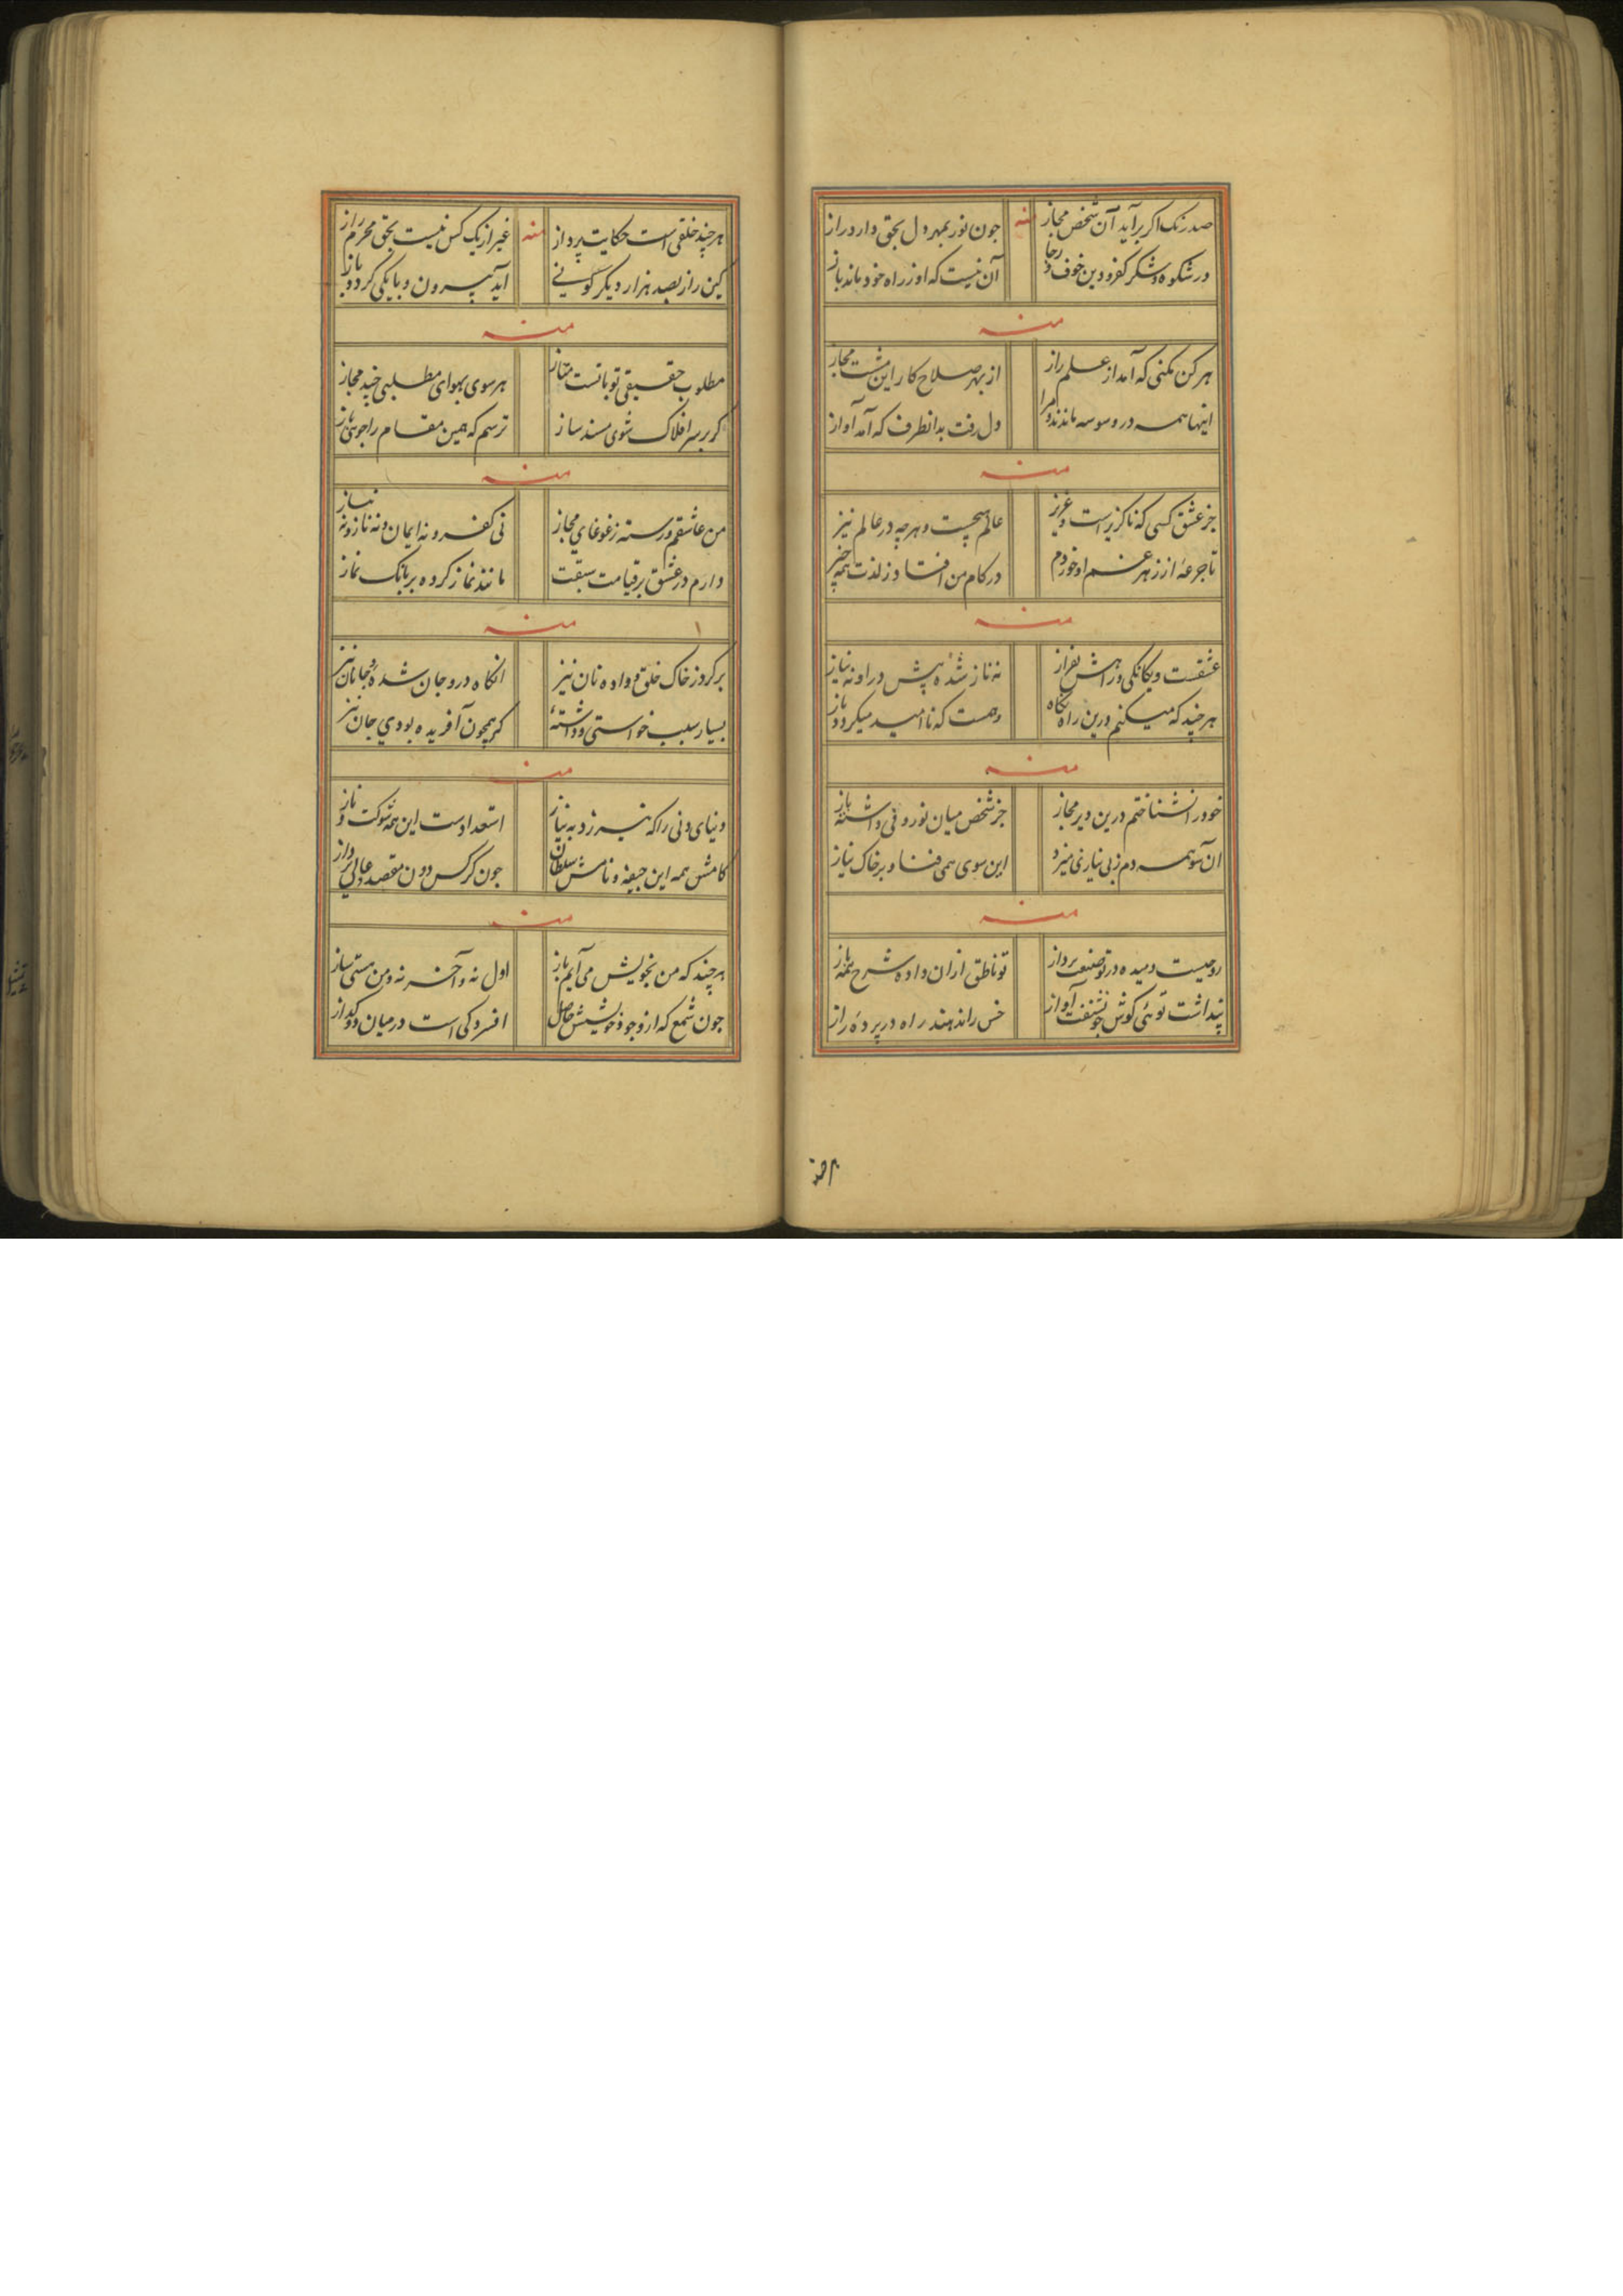 صد رنک اکر برآید آن شخص مجاز منه چون نور بمهر دل بحق دارد راز
در شکوه و شکر کفر و دین خوف و رجا آن نیست که او ز راه خود ماند باز
منه
هر کن مکنی که آمد از علم راز از بهر صلاح کار این مشت مجاز
اینها همه در وسوسه ماندند و مرا دل رفت بدانطرف که آمد آواز
منه
جز عشق کسی که ناکزیر است و عزیز عالم هیچست و هرچه در عالم نیز
تا جرعهٔ از زهر غم او خوردم در کام من افتاد ز لذت همه چیز
منه
عشقست و یکانکی و راهش بفراز نه ناز شده پیش در او نه نیاز
هرچند که میکنم درین راه نکاه وهمست که ناامید میکردد باز
منه
خود را نشناختم درین دیر مجاز جز شخص میان نور و فی داشته باز
آن سو همه دم ز بی نیازی میزد این سوی همی فتاد بر خاک نیاز
منه
روحیست دمیده در تو صنعت پرداز تو ناطق ازان داده شرح همه باز
پنداشت توئی کوش چو نشنفت آواز خس را ندهند راه در پردهٔ راز
هرچند
هرچند خلقی است حکایت پرداز منه غیر از یک کس نیست بحق محرم راز
کین راز بصد هزار دیکر کوئی آید بیرون و با یکی کردد باز
منه
مطلوب حقیقی تو با تست متاز هر سوی بهوای مطلبی چند مجاز
کر بر سر افلاک شوی مسند ساز ترسم که همین مقام را جوئی باز
منه
من عاشقم و رسته ز غوغای مجاز نی کفر و نه ایمان و نه ناز و نه نیاز
دارم در عشق بر قیامت سبقت مانند نماز کرده بر بانک نماز
منه
بر کرد ز خاک خلق و داده نان نیز انکاه درو جان شده و جانان نیز
بسیار سبب خواستی و داشتهٔ کر همچون آفریده بودی جان نیز
منه
دنیای دنی را که نیرزد به نیاز استعدادست این همه شوکت و ناز
کامش همه این جیفه و نامش سلطان چون کرکس دون مقصد عالی پرواز
منه
هرچند که من بخویش می آیم باز اول نه و آخر نه و من هستی ساز
چون شمع که از وجود خویشش حاصل افسردکی است در میان دو کداز